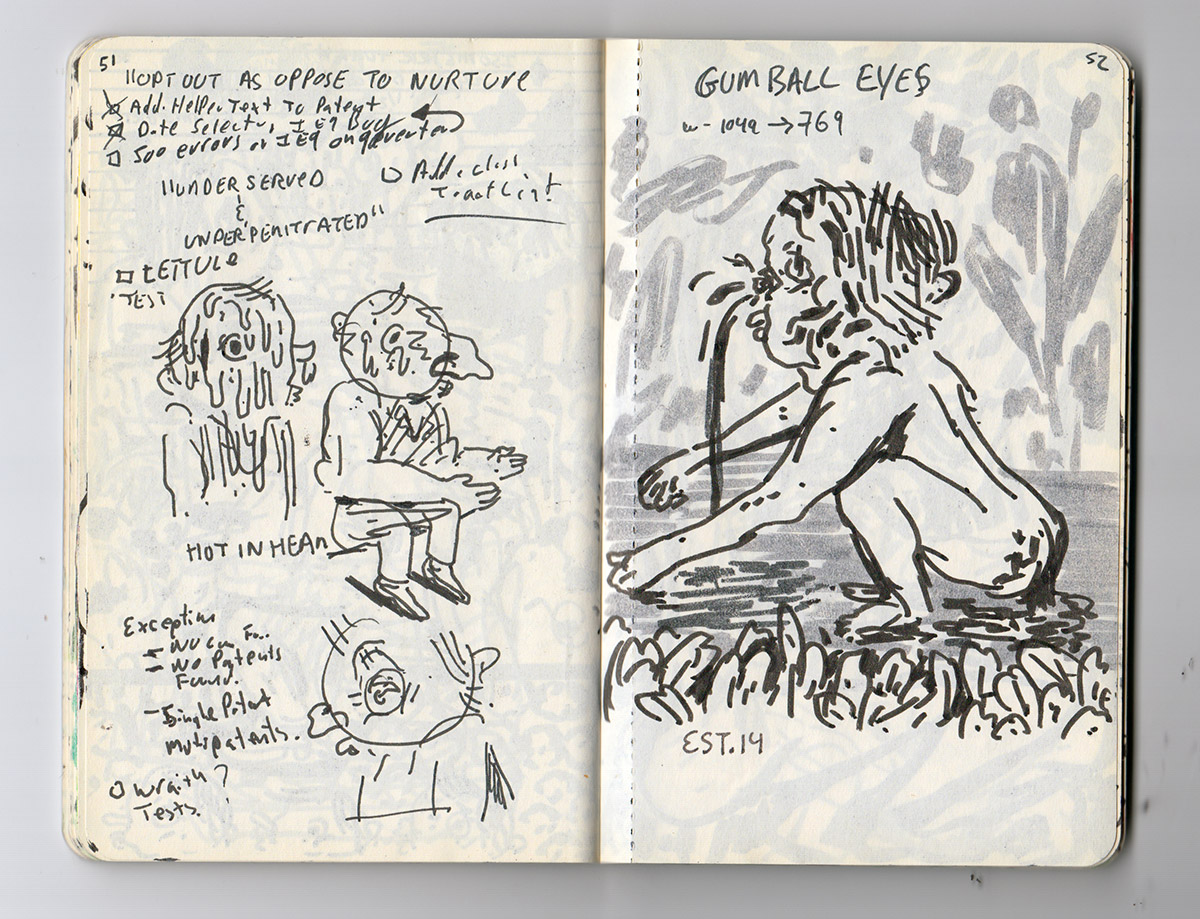 51
"OPT OUT AS OPPOSE TO NURTURE
Add Helper Text To Patent
Date Selector, IE9 Bug
500 errors on IE9
Add class
"UNDER SERVED
&
UNDER PENITRATED"
TEST
HOT IN HEAD
Exception
- No
- No Patents
Found.
- Single Patent
Multipatents.
Write
Tests.
52
GUMBALL EYES
w-1049 → 769
EST.14